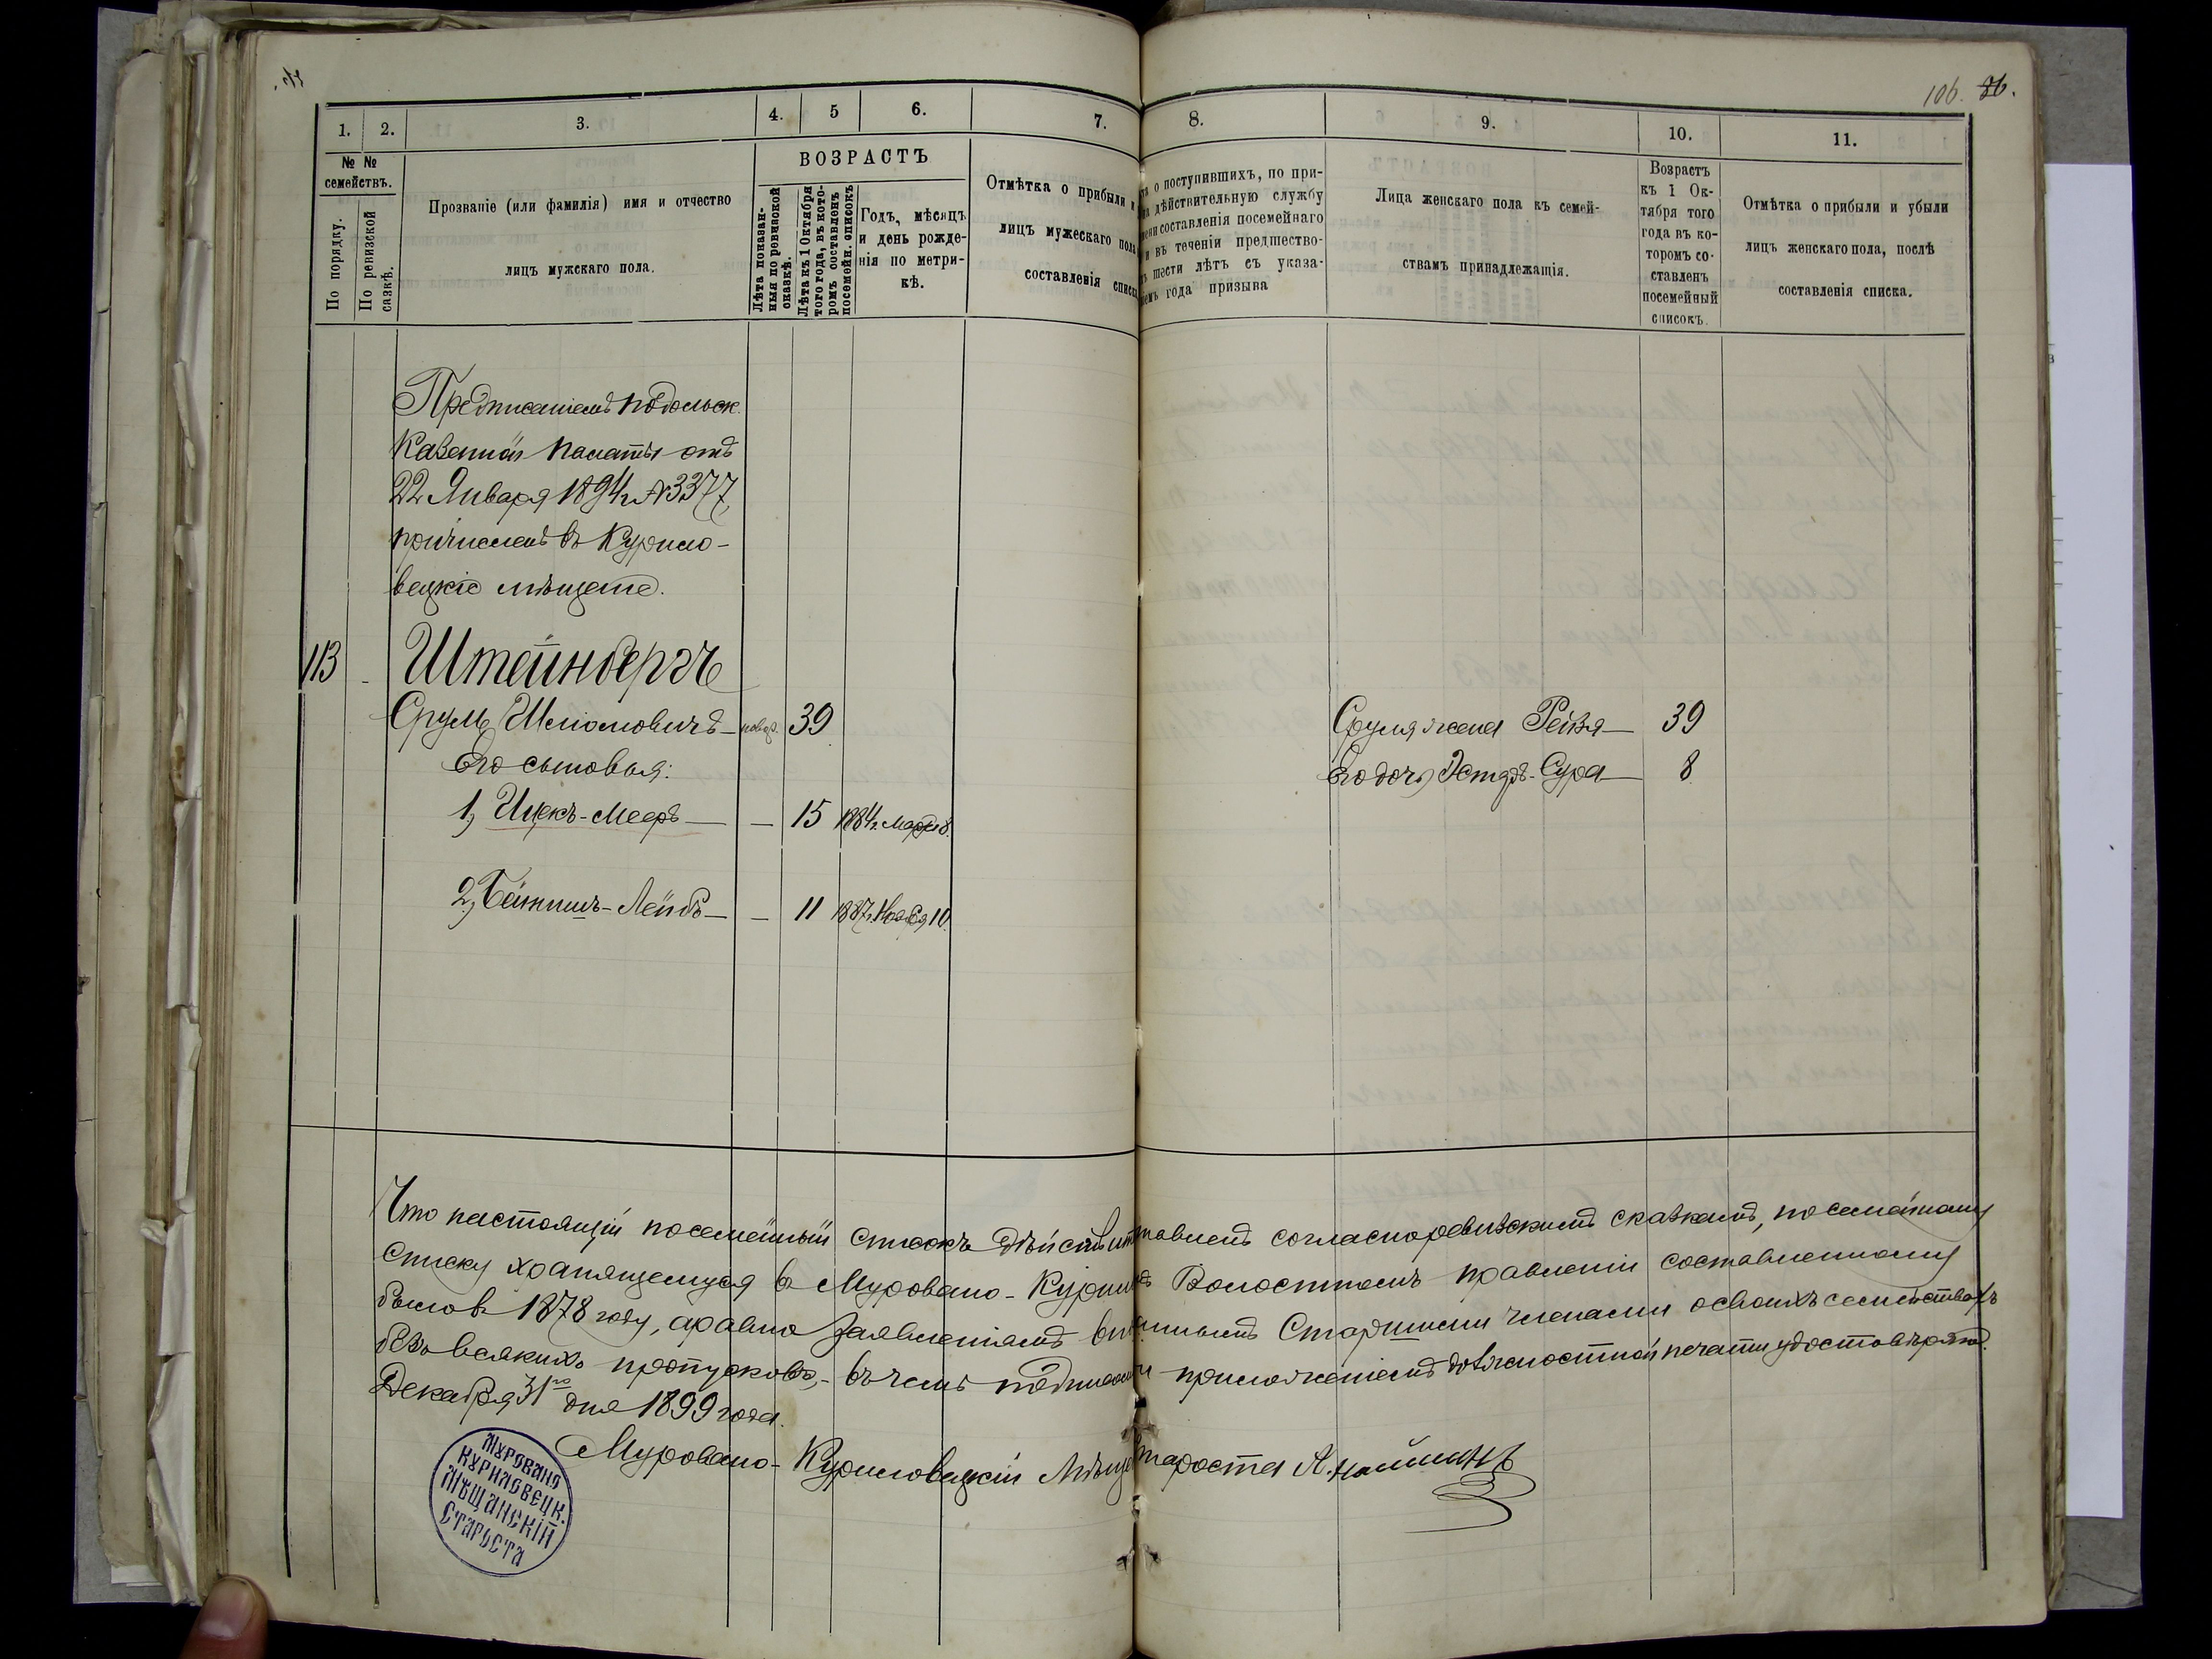 106. 86.
1. 2. 3. 4. 5 6. 7. 8. 9. 10. 11.
№ №
семействъ.
По порядку.
По ревизской
сказкѣ.
Прозваніе (или фамилія) имя и отчество
лицъ мужскаго пола.
ВОЗРАСТЪ
Лѣта показан-
ныя по ревизской
сказкѣ.
Лѣта къ 1 Октября
того года, въ кото-
ромъ составленъ
посемейн. списокъ
Годъ, мѣсяцъ
и день рожде-
нія по метри-
кѣ.
Отмѣтка о прибыли и
лицъ мужескаго пола
составленія списка
о поступившихъ, по при-
дѣйствительную службу
составленія посемейнаго
и въ теченіи предшество-
шести лѣтъ съ указа-
года призыва
Лица женскаго пола къ семей-
ствамъ принадлежащія.
Возрастъ
къ 1 Ок-
тября того
года въ ко-
торомъ со-
ставленъ
посемейный
списокъ.
Отмѣтка о прибыли и убыли
лицъ женскаго пола, послѣ
составленія списка.
Предписаніемъ Подольск.
Казенной Палаты отъ
22 Января 1894 г. № 3377,
причисленъ въ Курило-
вецкіе мѣщане.
113 - Штейнбергъ
Сруль Шліомовичъ — новор. 39
Его сыновья:
1, Ицекъ-Мееръ — — 15 1884 г. Марта 8.
2, Бейнишъ-Лейбъ — — 11 1887 г. Ноября 10.
Сруля жена Рейзя — 39
Его дочь Эстеръ-Сура — 8
Что настоящій посемейный списокъ согласно ревизскимъ сказкамъ, посемейному
списку хранящемуся въ Муровано-Курил Волостномъ правленіи составленному
былов 1878 году, а равно заявленіямъ Старшими членами о своихъ семействахъ
безъ всякихъ пропусковъ, - въ чемъ подписомъ и приложеніемъ должностной печати удостовѣряю.
Декабря 31го дня 1899 года.
Муровано-Куриловецкій Мѣщ староста
МУРОВАНО
КУРИЛОВЕЦК.
МѢЩАНСКІЙ
СТАРОСТА